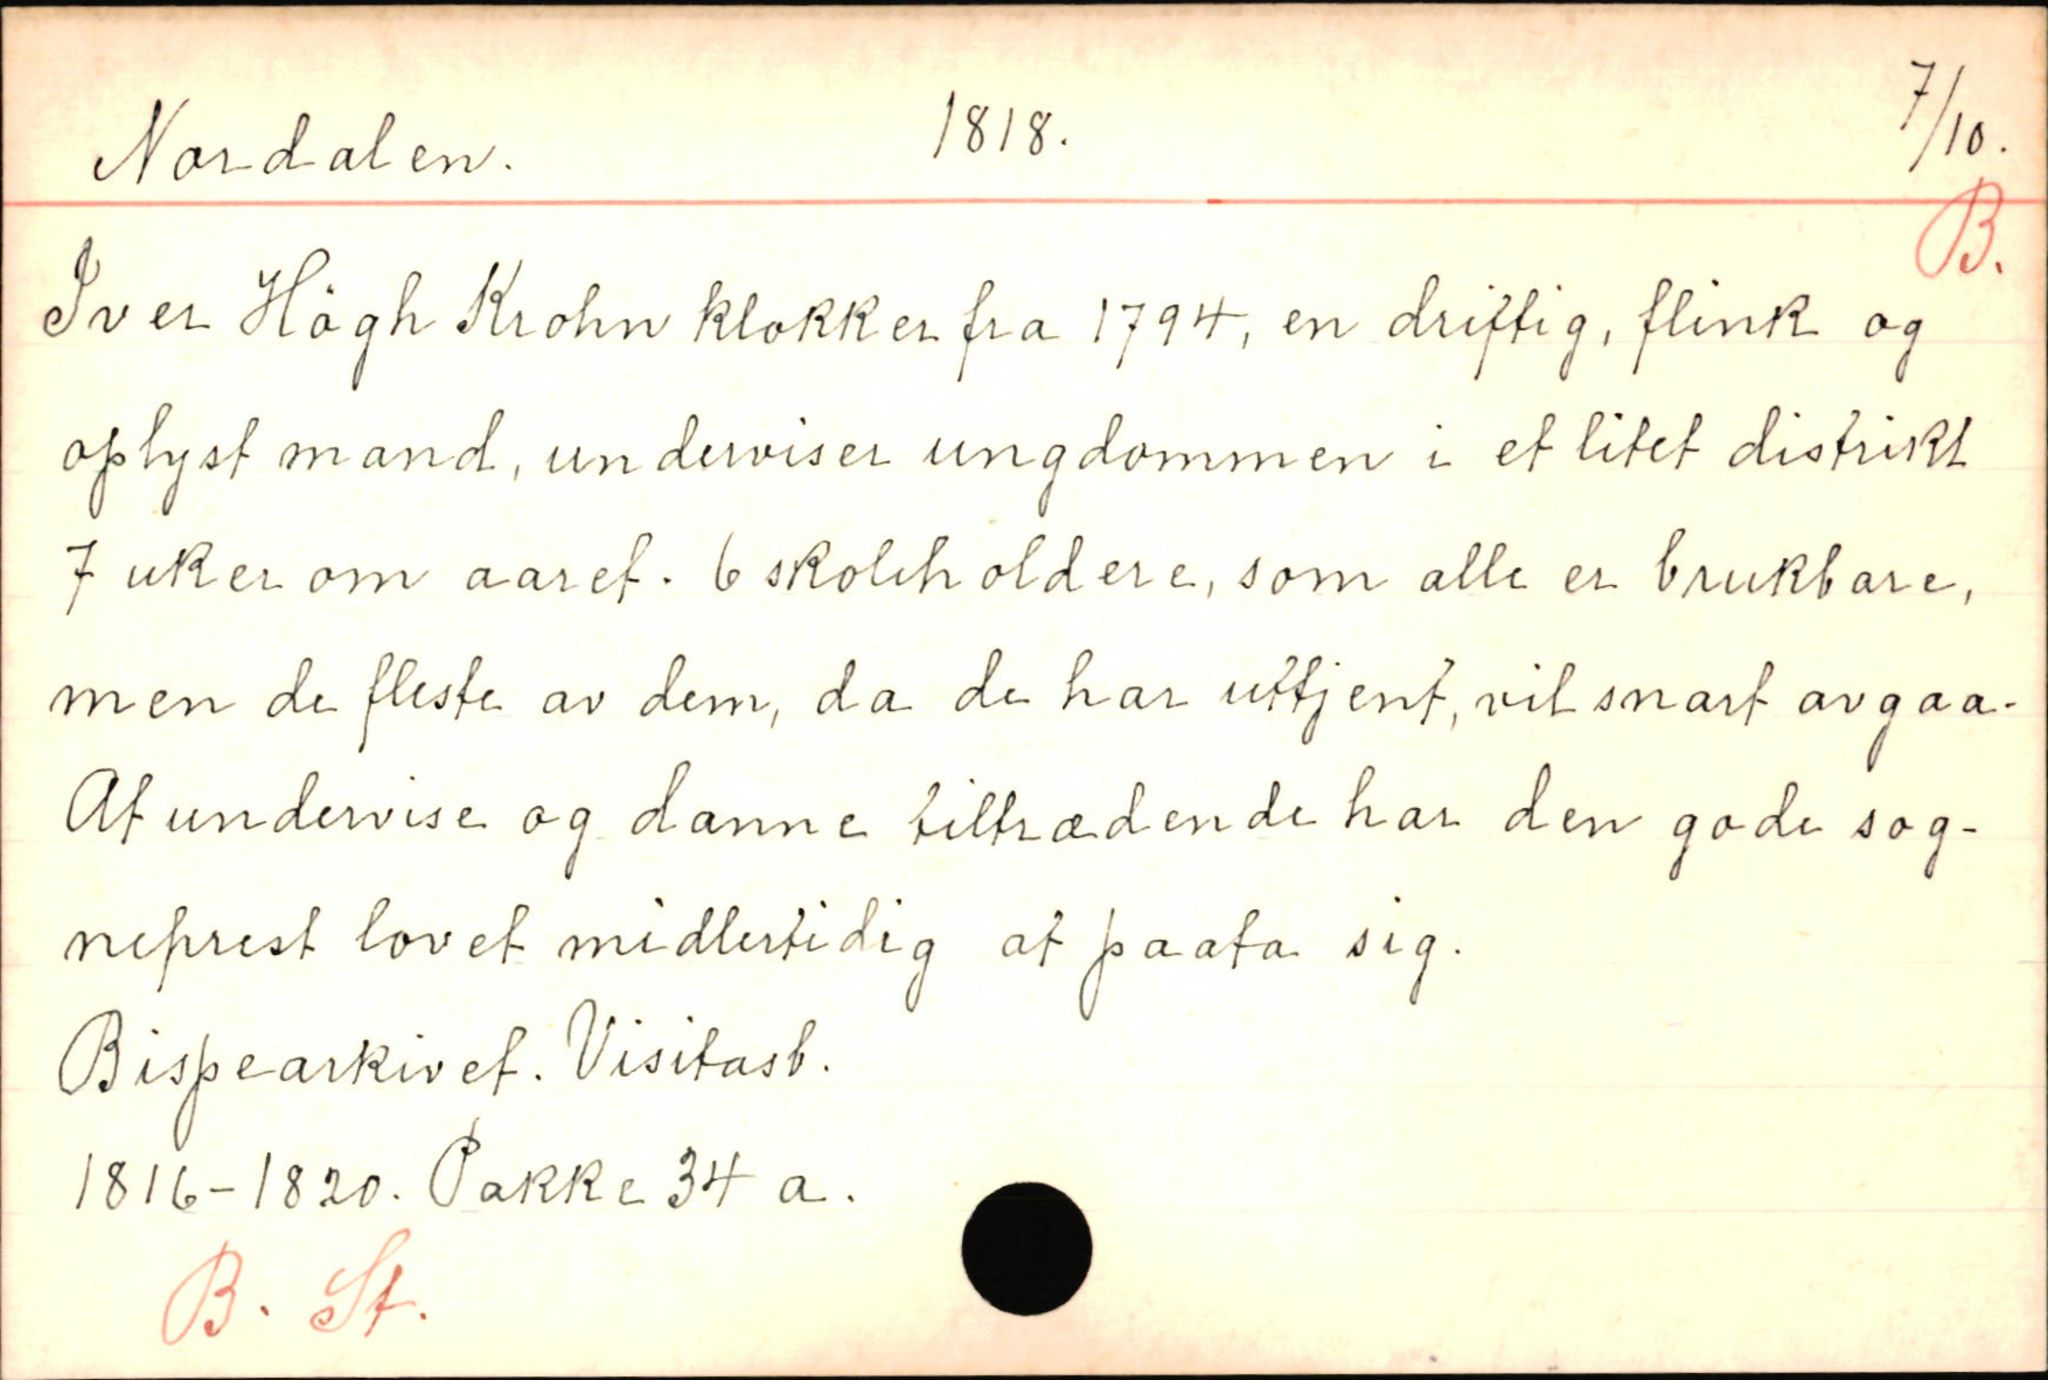 Nordalen. 1818. 7/10.
B.
Iver Högh Krohn klokker fra 1794, en driftig, flink og
oplyst mand, underviser ungdommen i et litet distrikt
7 uker om aaret. 6 skoleholdere, som alle er brukbare,
men de fleste av dem, da de har uttjent, vil snart avgaa.
At undervise og danne tiltrædende har den gode sog-
neprest lovet midlertidig at paata sig.
Bispearkivet. Visitasb.
1816-1820. Pakke 34 a.
B. St.